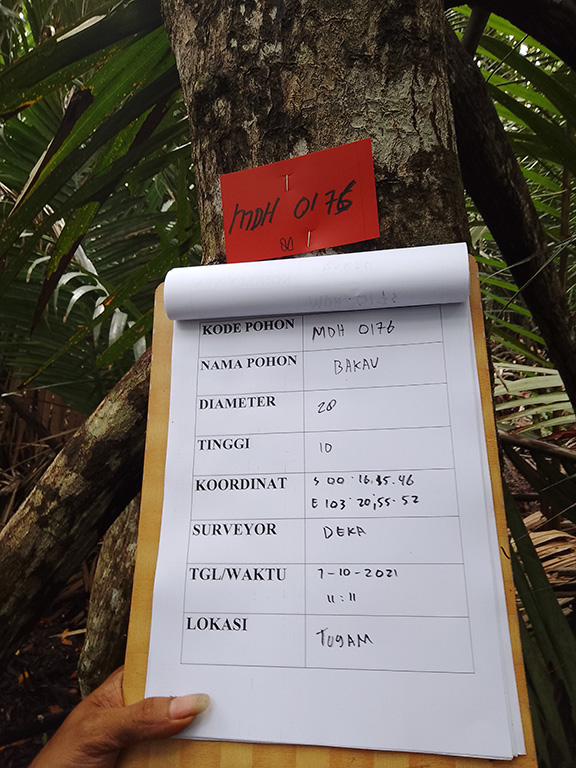 MDH 0176
KODE POHON MDH 0176
NAMA POHON BAKAU
DIAMETER 28
TINGGI 10
KOORDINAT S 00.16.35.46
E 103.20;55.52
SURVEYOR DEKA
TGL/WAKTU 7-10-2021
11:11
LOKASI TUGAM